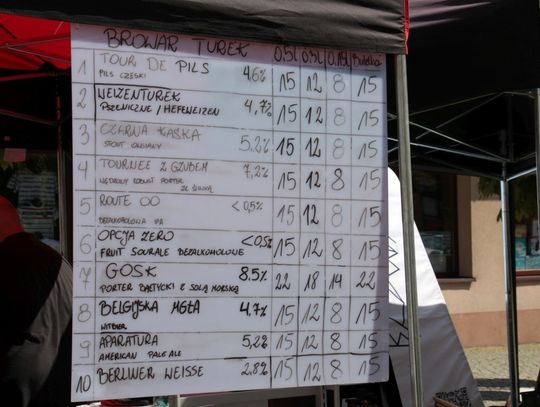 BROWAR TUREK 0,5l 0,3l 0,15l Butelka
1 TOUR DE PILS 4,6% 15 12 8 15
PILS CZESKI
2 WEIZENTUREK 4,7% 15 12 8 15
PSZENICZNE / HEFEWEIZEN
3 CZARNA KAŚKA 5,2% 15 12 8 15
STOUT OWSIANY
4 TOURNEE Z GZUBEM 7,2% 15 12 8 15
WĘDZONY ROBUST PORTER
ZE ŚLIWKĄ
5 ROUTE 00 <0,5% 15 12 8 15
BEZALKOHOLOWA IPA
6 OPCJA ZERO <0,5% 15 12 8 15
FRUIT SOURALE BEZALKOHOLOWE
7 GOSK 8.5% 22 18 14 22
PORTER BAŁTYCKI Z SOLĄ MORSKĄ
8 BELGIJSKA MGŁA 4,7% 15 12 8 15
WITBIER
9 APARATURA 5,2% 15 12 8 15
AMERICAN PALE ALE
10 BERLINER WEISSE 2,8% 15 12 8 15